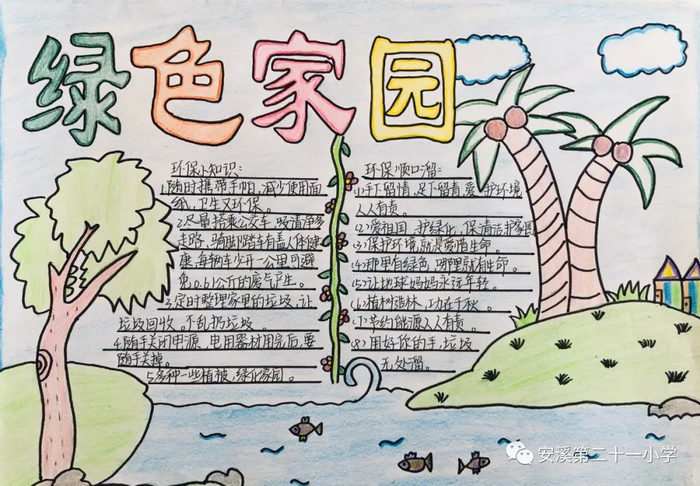 绿色家园
环保小知识：
1.随时携带手帕，减少使用面
纸，卫生又环保。
2.尽量搭乘公交车，
走路，骑脚踏车有益人体健
康，每辆车少开一公里可避
免0.61公斤的废气产生。
3.定时整理家里的垃圾，让
垃圾回收，不乱扔垃圾。
4.随手关闭电源，电用器材用完后，要
随手关掉。
5.多种一些植被，绿化家园。
环保顺口溜：
1.手下留情，足下留青，爱护环境
人人有责。
2.爱祖国，护绿化，保清洁护家园
3.保护环境，就是爱惜生命。
4.那里有绿色，哪里就有生命。
5.让地球妈妈永远年轻。
6.植树造林，功在千秋。
7.节约能源人人有责。
8.用好你的手，垃圾
无处溜。
安溪第二十一小学